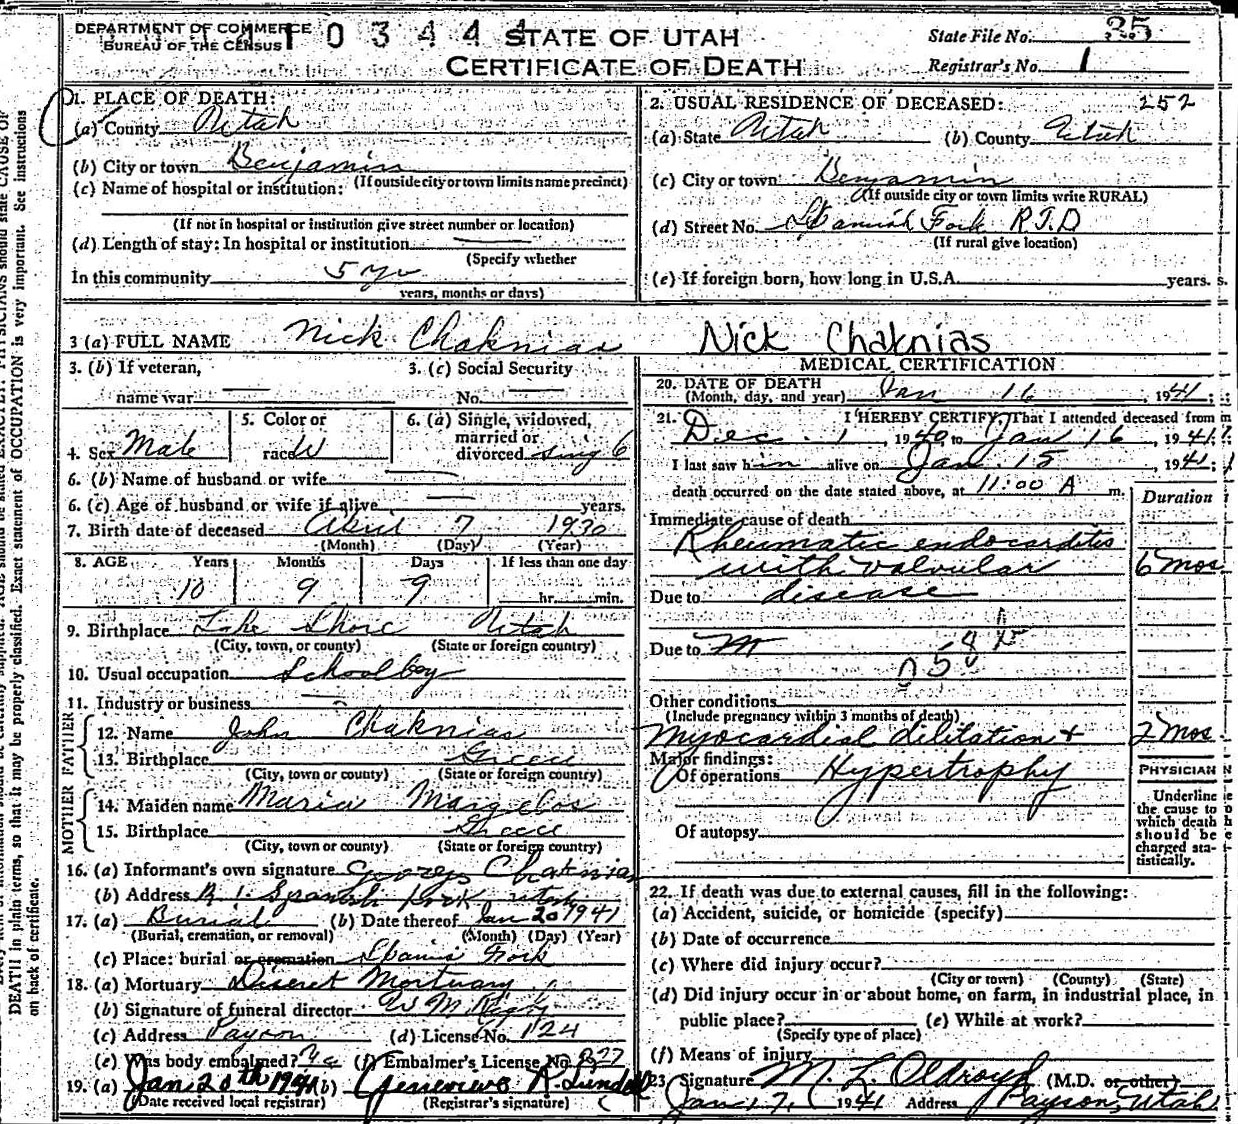 DEPARTMENT OF COMMERCE
BUREAU OF THE CENSUS
1 0 3 4 4 4
STATE OF UTAH
CERTIFICATE OF DEATH
State File No. 35
Registrar's No. 1
1. PLACE OF DEATH:
(a) County Utah
(b) City or town Benjamin
(If outside city or town limits name precinct)
(c) Name of hospital or institution:
(If not in hospital or institution give street number or location)
(d) Length of stay: In hospital or institution
(Specify whether
In this community 5 yr
years, months or days)
2. USUAL RESIDENCE OF DECEASED: 252
(a) State Utah (b) County Utah
(c) City or town Benjamin
(If outside city or town limits write RURAL)
(d) Street No. Spanish Fork R.F.D
(If rural give location)
(e) If foreign born, how long in U.S.A. years.
3 (a) FULL NAME Nick Chaknias Nick Chaknias
3. (b) If veteran, name war
3. (c) Social Security No.
4. Sex Male
5. Color or race W
6. (a) Single, widowed, married or divorced
6. (b) Name of husband or wife
6. (c) Age of husband or wife if alive years.
7. Birth date of deceased April 7 1930
(Month) (Day) (Year)
8. AGE Years Months Days If less than one day
10 9 9 hr. min.
9. Birthplace Lake Shore Utah
(City, town, or county) (State or foreign country)
10. Usual occupation Schoolboy
11. Industry or business
FATHER
12. Name John Chaknias
13. Birthplace Greece
(City, town or county) (State or foreign country)
MOTHER
14. Maiden name Maria Margelos
15. Birthplace Greece
(City, town or county) (State or foreign country)
16. (a) Informant's own signature George Chaknias
(b) Address R. 1. Spanish Fork Utah
17. (a) Burial (b) Date thereof Jan 20 1941
(Burial, cremation, or removal) (Month) (Day) (Year)
(c) Place: burial or cremation Spanis Fork
18. (a) Mortuary Diseret Mortuary
(b) Signature of funeral director W M
(c) Address Payson (d) License No. 124
(e) Was body embalmed? (f) Embalmer's License No. 327
19. (a) Jan 20th 1941 (b) Genevieve R. Lundell
(Date received local registrar) (Registrar's signature)
MEDICAL CERTIFICATION
20. DATE OF DEATH Jan 16, 1941;
(Month, day, and year)
21. I HEREBY CERTIFY, That I attended deceased from
Dec. 1, 1940, to Jan 16, 1941;
I last saw him alive on Jan. 15, 1941;
death occurred on the date stated above, at 11:00 A m.
Duration
Immediate cause of death
Rheumatic endocarditis
with valvular 6 mos
Due to disease
Due to
Other conditions
(Include pregnancy within 3 months of death)
Myocardial dilitation + 2 mos
Major findings:
Of operations Hypertrophy
Of autopsy
PHYSICIAN
Underline
the cause to
which death
should be
charged sta-
tistically.
22. If death was due to external causes, fill in the following:
(a) Accident, suicide, or homicide (specify)
(b) Date of occurrence
(c) Where did injury occur?
(City or town) (County) (State)
(d) Did injury occur in or about home, on farm, in industrial place, in
public place? (e) While at work?
(Specify type of place)
(f) Means of injury
23. Signature M. L. Oldroyd (M.D. or other)
Jan 17, 1941 Address Payson, Utah
DEATH in plain terms, so that it may be properly classified. Exact statement of OCCUPATION is very important. See instructions
on back of certificate.